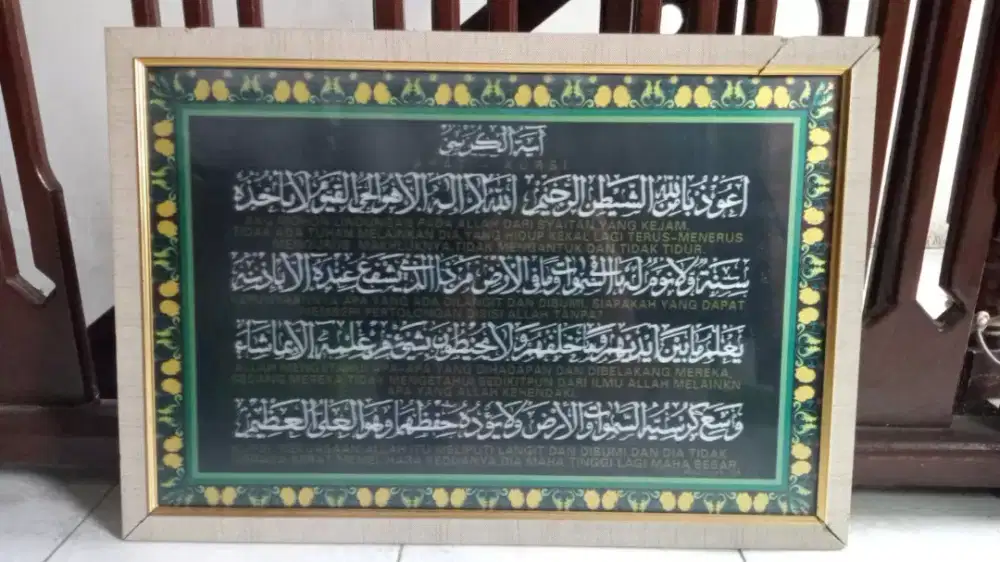 آية الكرسي
أعوذ بالله من الشيطن الرجيم الله لا إله إلا هو الحي القيوم لا تأخذه
PADA ALLAH DARI SYAITAN YANG KEJAM.
TIDAK ADA TUHAN MELAINKAN DIA YANG HIDUP KEKAL LAGI TERUS-MENERUS
MENGURUS MAKHLUKNYA TIDAK MENGANTUK DAN TIDAK TIDUR
سنة ولا نوم له ما في السموات وما في الأرض من ذا الذي يشفع عنده إلا بإذنه
APA YANG ADA DILANGIT DAN DIBUMI. SIAPAKAH YANG DAPAT
MEMBERI PERTOLONGAN DISISI ALLAH TANPA?
يعلم ما بين أيديهم وما خلفهم ولا يحيطون بشيء من علمه إلا بما شاء
ALLAH MENGETAHUI APA-APA YANG DIHADAPAN DAN DIBELAKANG MEREKA.
SEDANG MEREKA TIDAK MENGETAHUI SEDIKITPUN DARI ILMU ALLAH MELAINKN
APA YANG ALLAH KEHENDAKI.
وسع كرسيه السموات والأرض ولا يؤده حفظهما وهو العلي العظيم
ALLAH ITU MELIPUTI LANGIT DAN DIBUMI DAN DIA TIDAK
BERAT MEMELIHARA KEDUANYA DIA MAHA TINGGI LAGI MAHA BESAR.